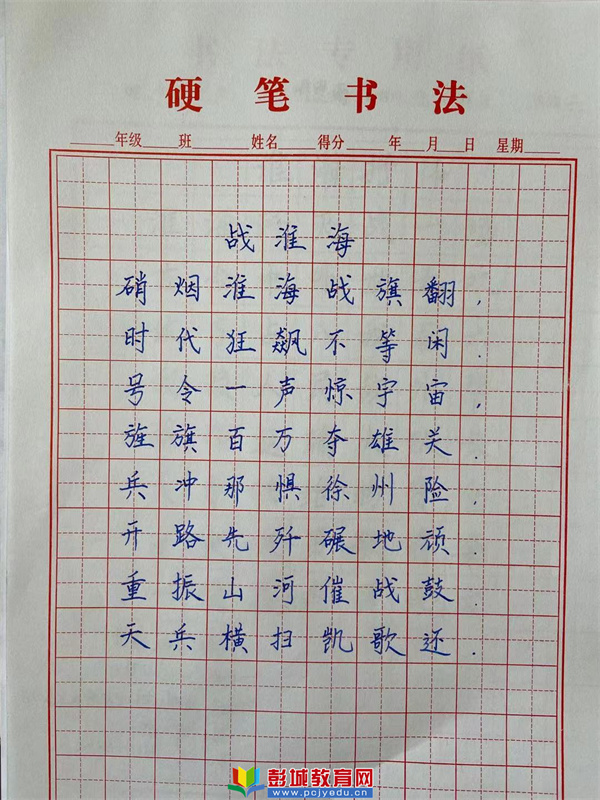 硬笔书法
年级 班 姓名 得分 年 月 日 星期
战淮海
硝烟淮海战旗翻，
时代狂飙不等闲.
号令一声惊宇宙，
旌旗百万夺雄关.
兵冲那惧徐州险，
开路先歼碾地顽.
重振山河催战鼓，
天兵横扫凯歌还.
彭城教育网
www.pcjyedu.cn